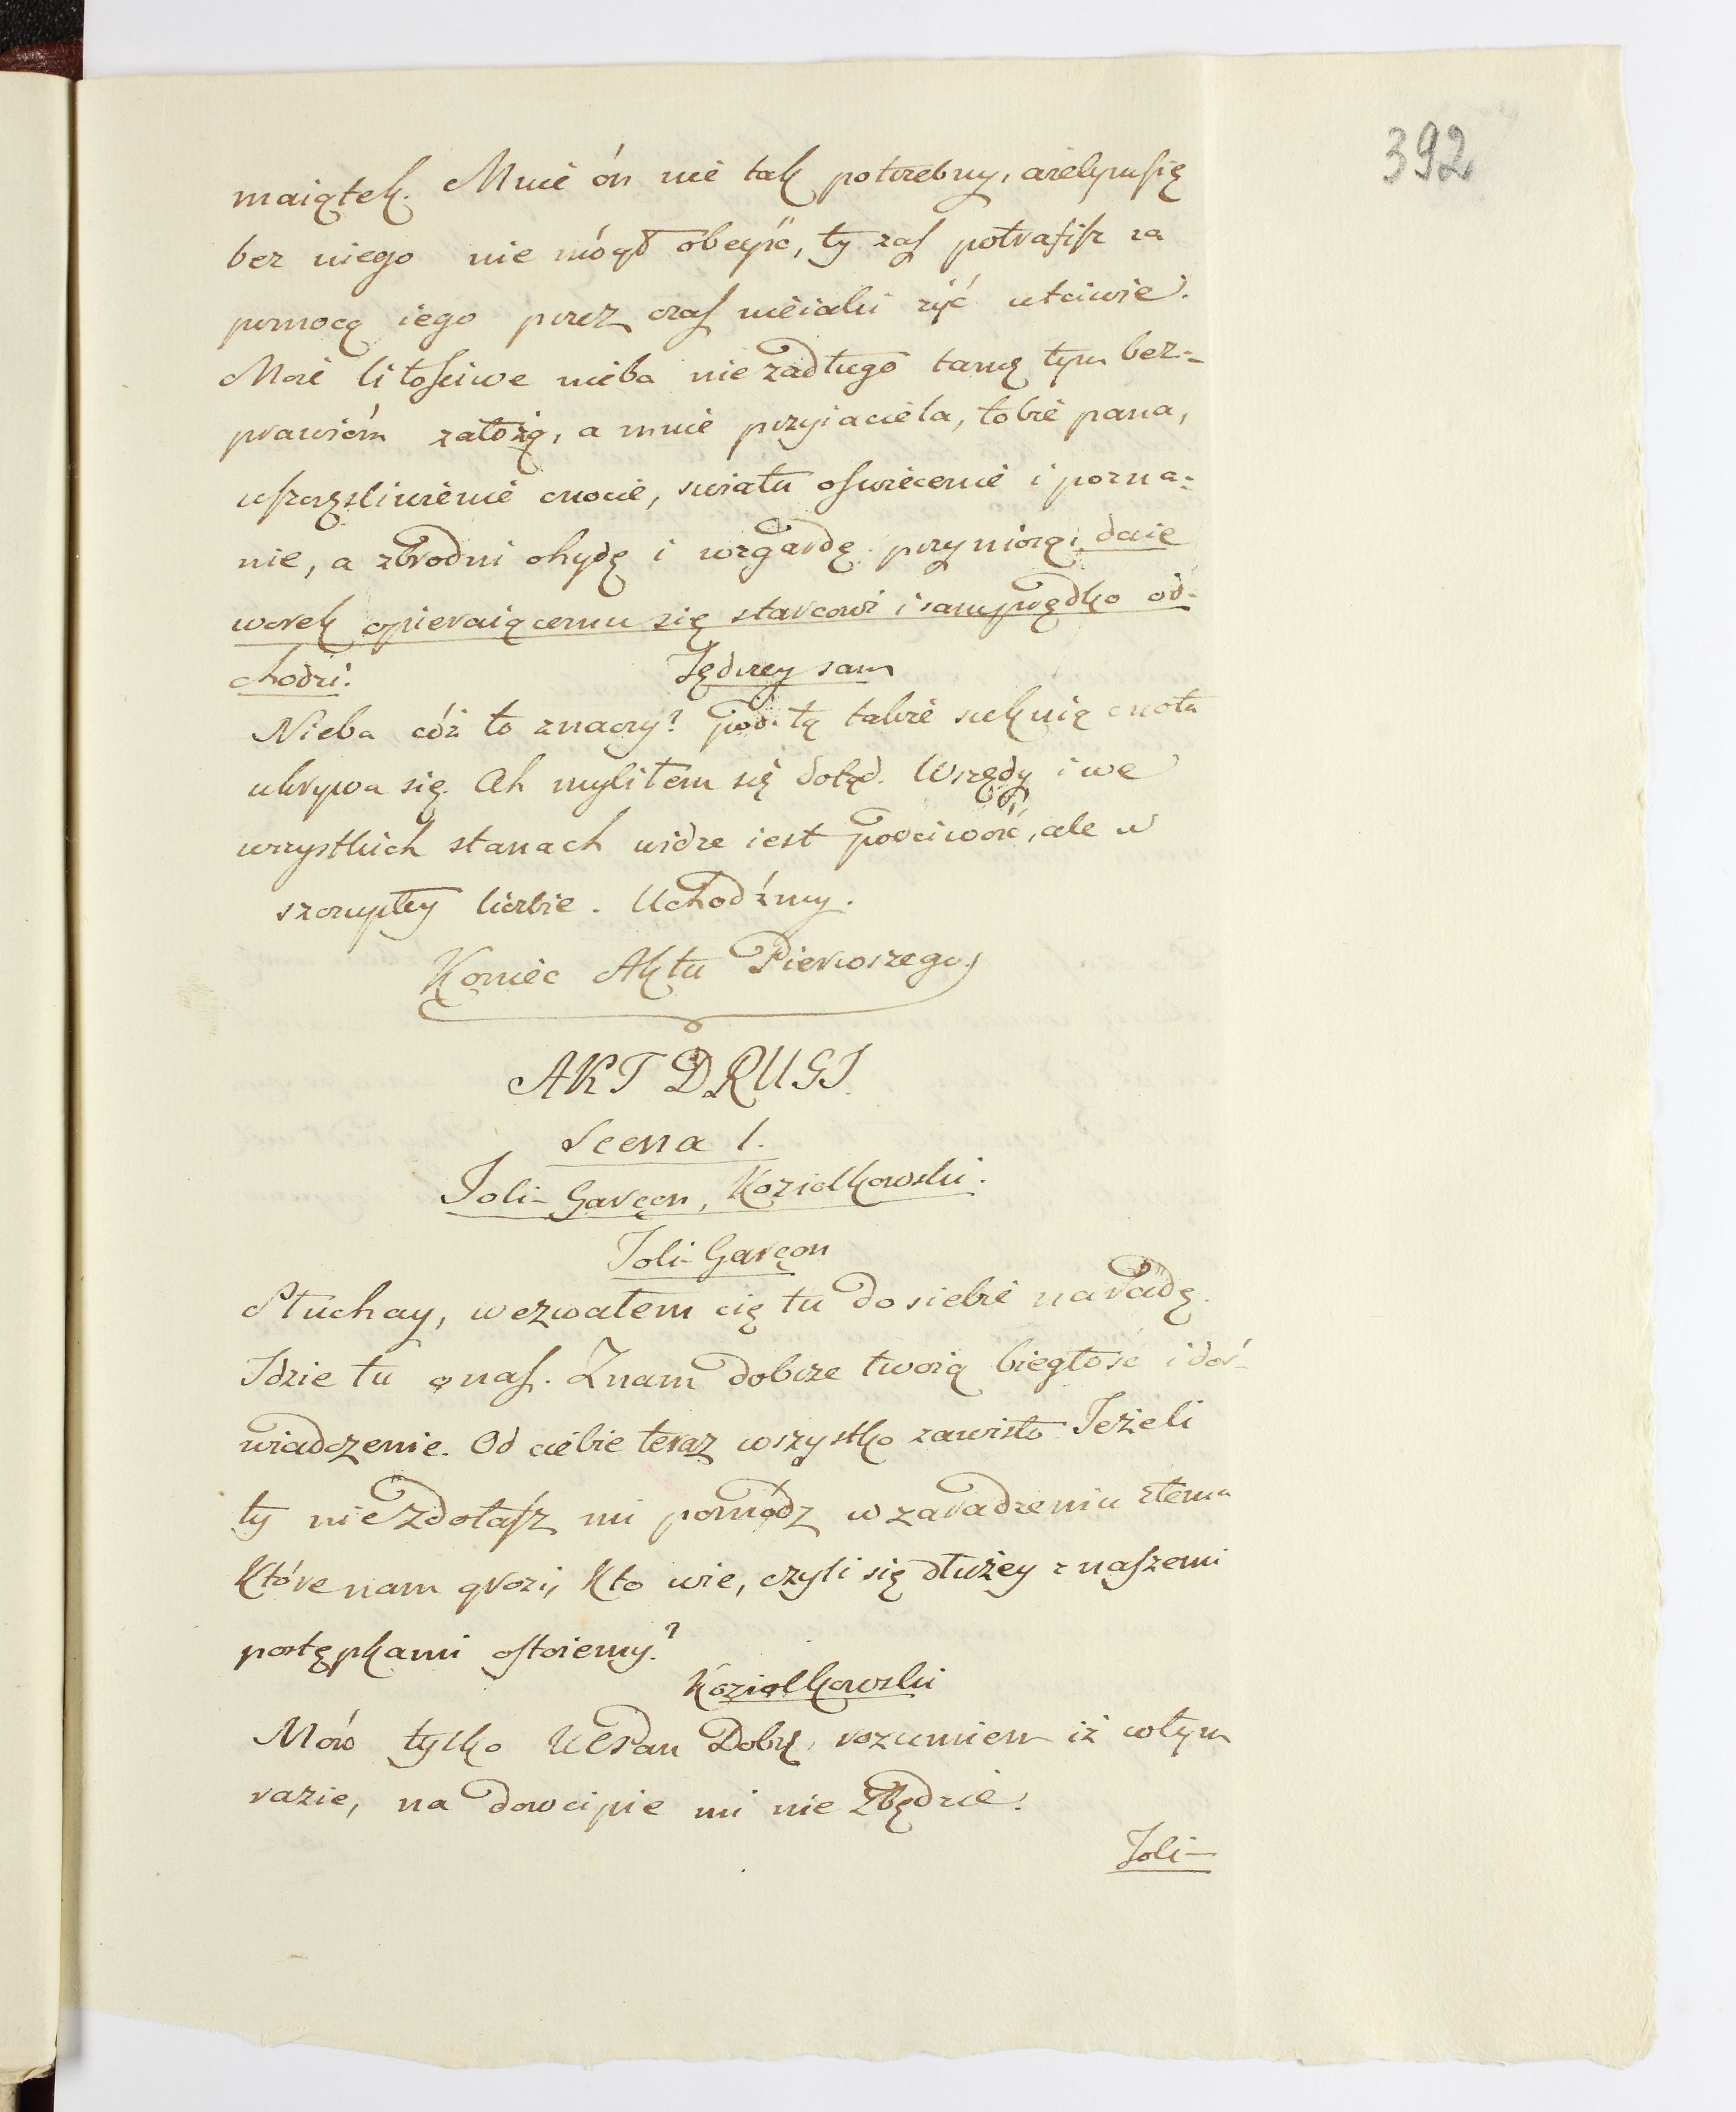 392
maiątek. Mnie ón nie tak potrzebny, ażebym się
bez niego nie mógł obeyść, ty zaś potrafisz za
pomocą iego przez czas nieiaki żyć ućciwie.
Może litościwe nieba niezadługo tamę tym bez-
prawióm założą, a mnie przyiaciela, tobie pana,
uszczęśliwienie cnocie, światu oświecenie i pozna-
nie, a zbrodni ohydę i wzgardę przyniosą; daie
worek opieraiącemu się starcowi i sam prędko od-
chodzi.
Jędrzey sam
Nieba cóż to znaczy? pod tą także suknią cnota
ukrywa się. Ah myliłem się dotąd. Wszędy i we
wszystkich stanach widzę iest poczciwość, ale w
szczupłey liczbie. Uchodźmy.
Koniec Aktu Pierwszego
AKT DRUGI
Scena 1.
Joli-Garçon, Koziołkowski.
Joli-Garçon
Słuchay, wezwałem cię tu do siebie na radę.
Idzie tu o nas. Znam dobrze twoią biegłość i doś-
wiadczenie. Od ciebie teraz wszystko zawisło. Jeżeli
ty nie zdołasz mi pomódz w zaradzeniu złemu
które nam grozi, kto wie, czyli się dłużey z naszemi
postępkami ostoiemy?
Koziołkowski
Mów tylko WPan Dobr, rozumiem iż w tym
razie, na dowcipie mi nie zbędzie.
Joli-